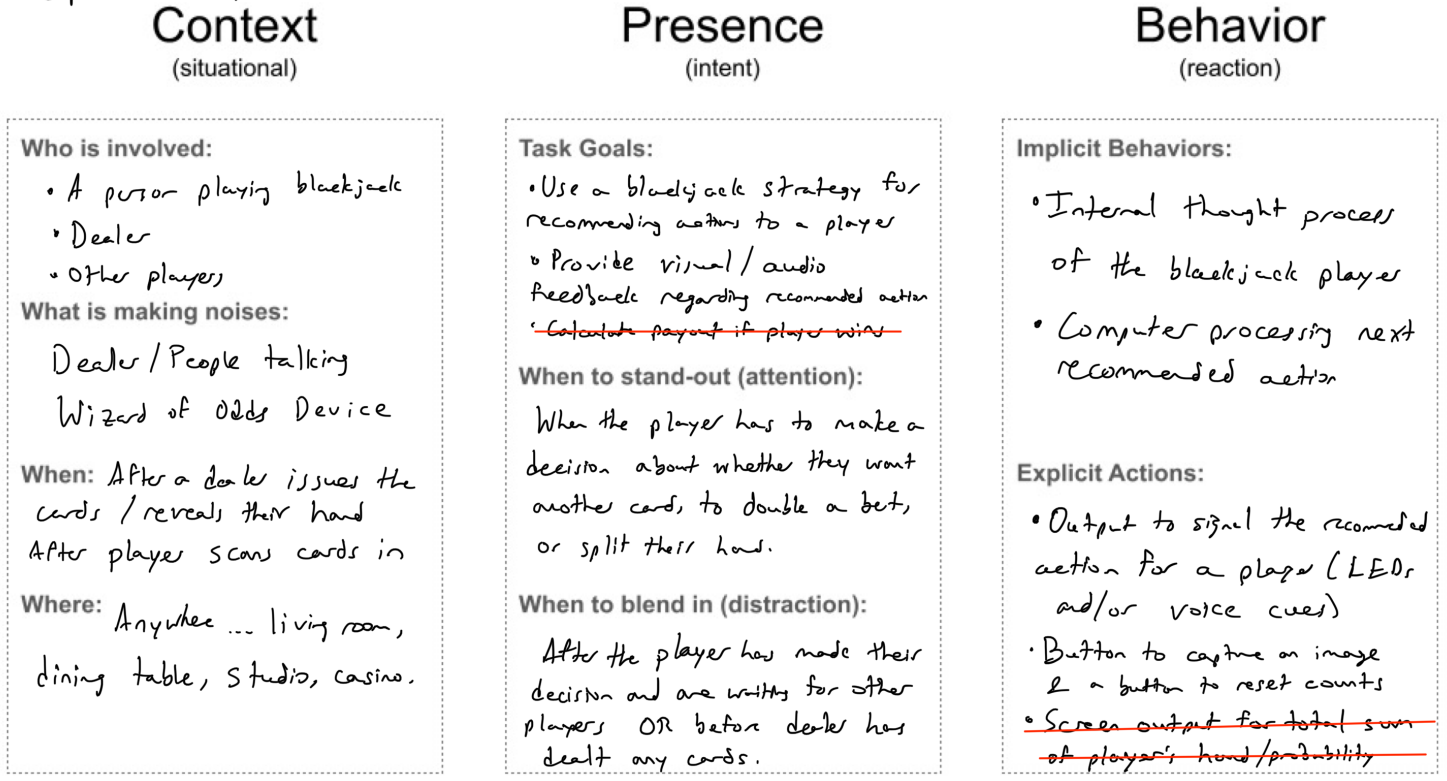 Context
(situational)
Who is involved:
• A person playing blackjack
• Dealer
• Other players
What is making noises:
Dealer/People talking
Wizard of Odds Device
When: After a dealer issues the
cards / reveals their hand
After player scans cards in
Where: Anywhere ... living room,
dining table, studio, casino.
Presence
(intent)
Task Goals:
• Use a blackjack strategy for
recommending actions to a player
• Provide visual / audio
feedback regarding recommended action
• Calculate payout if player wins
When to stand-out (attention):
When the player has to make a
decision about whether they want
another card, to double a bet,
or split their hand.
When to blend in (distraction):
After the player has made their
decision and are waiting for other
players OR before dealer has
dealt any cards.
Behavior
(reaction)
Implicit Behaviors:
• Internal thought process
of the blackjack player
• Computer processing next
recommended action
Explicit Actions:
• Output to signal the recommended
action for a player (LEDs
and/or voice cues)
• Button to capture an image
& a button to reset counts
• Screen output for total sum
of player's hand/probability